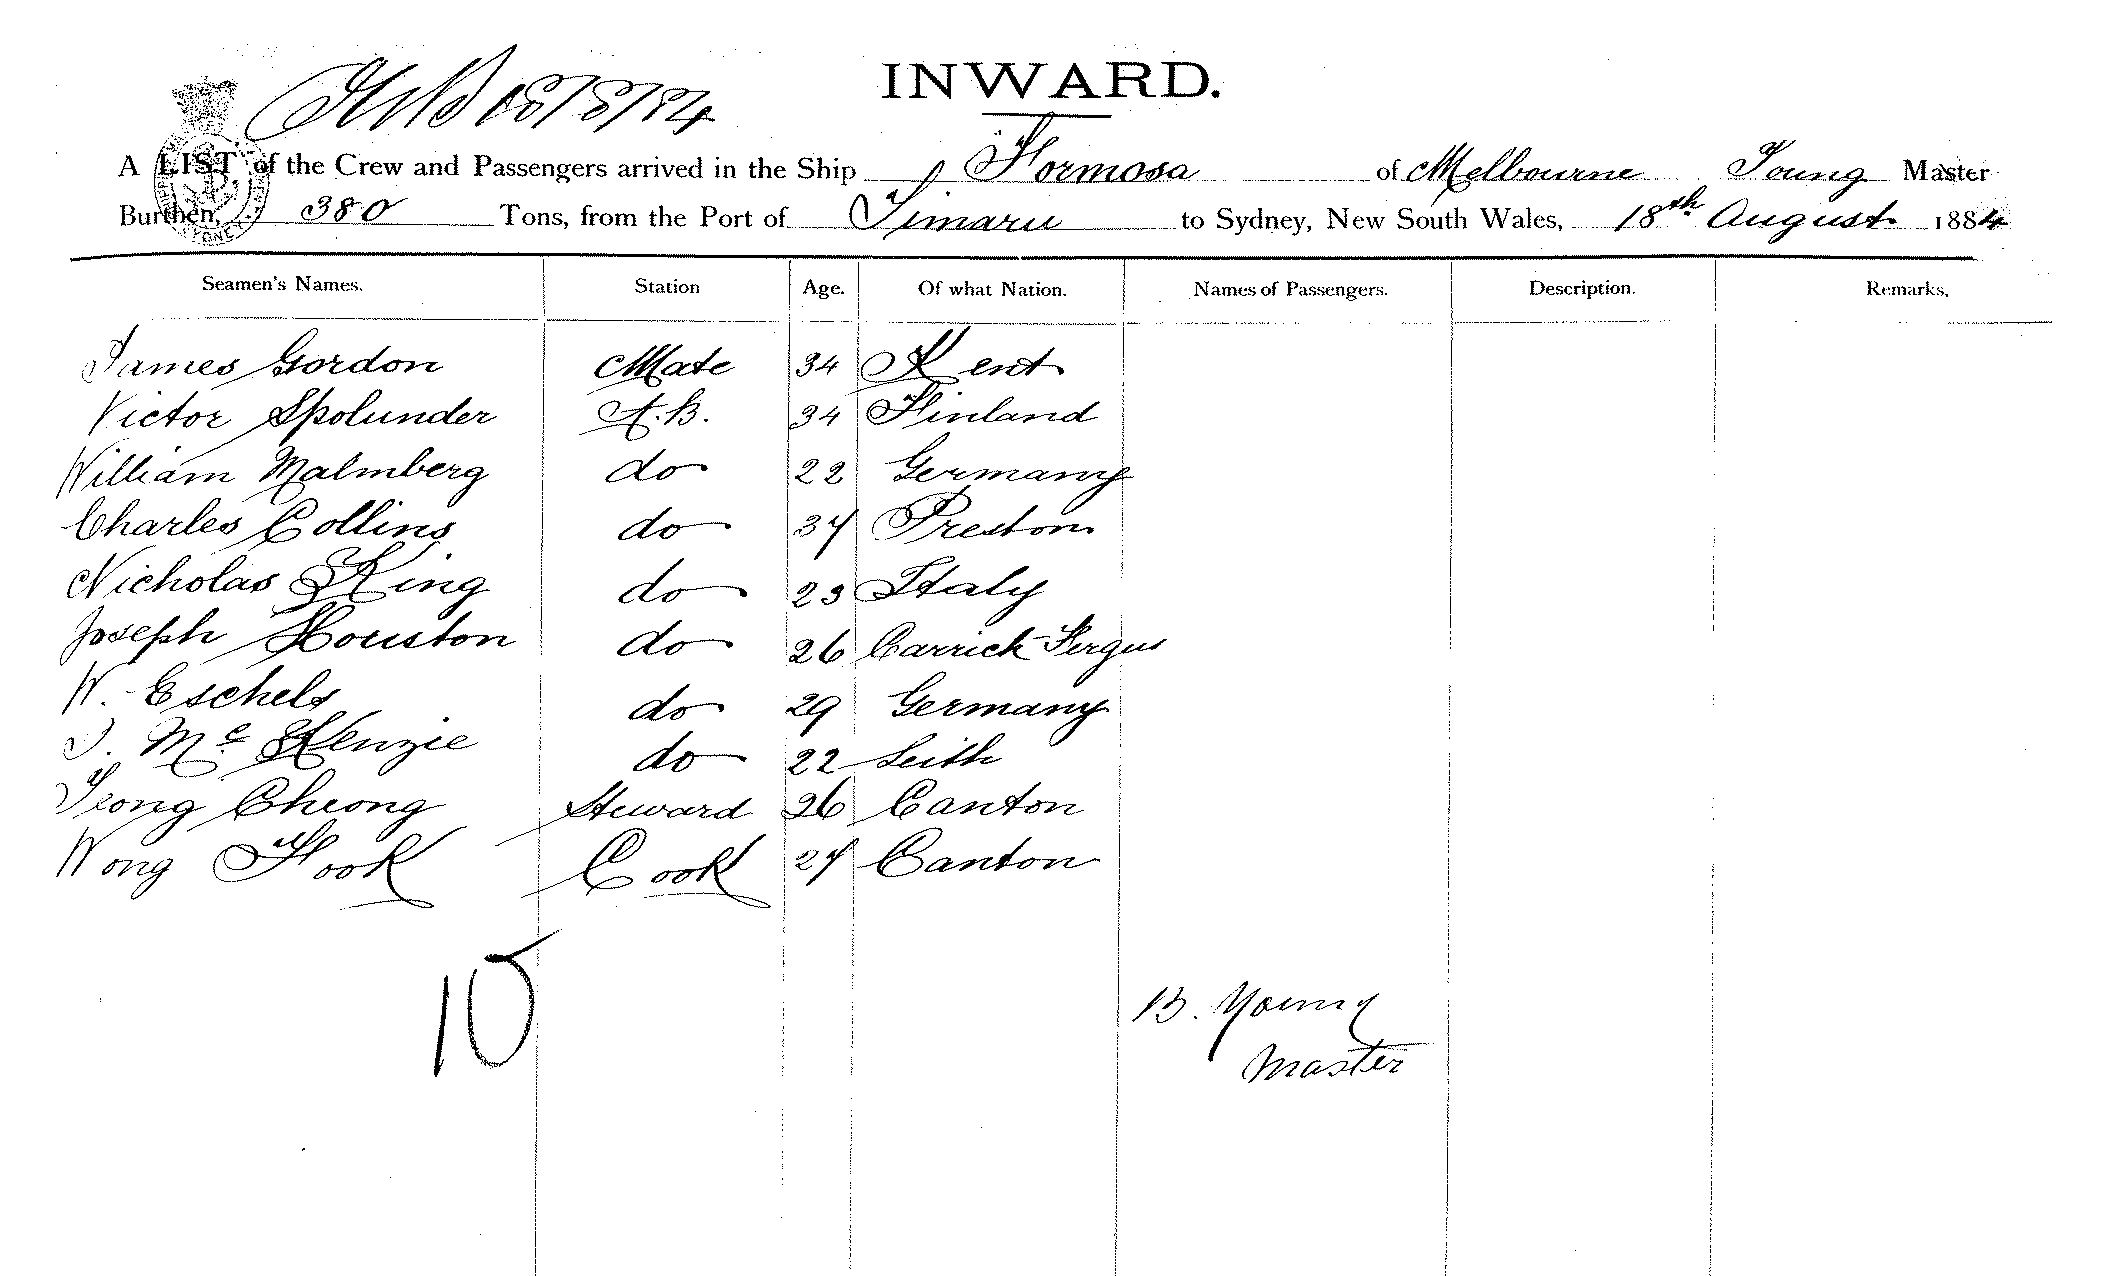 18/8/84
INWARD.
A LIST of the Crew and Passengers arrived in the Ship Formosa of Melbourne Young Master
Burthen, 380 Tons, from the Port of Timaru to Sydney, New South Wales, 18th August 1884
Seamen's Names. Station Age. Of what Nation. Names of Passengers. Description. Remarks,
James Gordon Mate 34 Kent
Victor Spolunder A.B. 34 Finland
William Malmberg do 22 Germany
Charles Collins do Preston
Nicholas King do 23 Italy
Joseph Houston do 26 Carrick-Fergus
W. Eschels do 29 Germany
Mc Kenzie do 22 Leith
Cheong Steward 26 Canton
Wong Hook Cook Canton
10
B. Young
Master